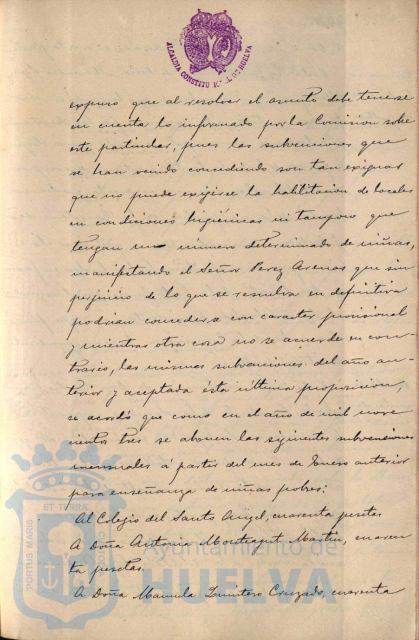 ALCALDIA CONSTITU NAL DE HUELVA
expuso que al resolver el asunto debe tenerse
en cuenta lo informado por la Comision sobre
este particular, pues las subvenciones que
se han venido concediendo son tan exiguas
que no puede exigirse la habilitacion de locales
en condiciones higiénicas ni tampoco que
tengan un número determinado de niñas,
manifestando el Señor Perez Arenas que sin
perjuicio de lo que se resuelva en definitiva
podrian concederse con caracter provisional
y mientras otra cosa no se acuerde en con-
trario, las mismas subvenciones del año an-
terior y aceptada ésta ultima proposicion,
se acordó que como en el año de mil nove
cientos tres se abonen las siguientes subvenciones
mensuales á partir del mes de Enero anterior
para enseñanza de niñas pobres:
Al Colegio del Santo Angel, cuarenta pesetas
A Doña Antonia Montagut Martin, cuaren
ta pesetas.
A Doña Manuela Quintero Cruzado, cuarenta
PORTUS MARIS
ET TERRÆ
Ayuntamiento de
HUELVA